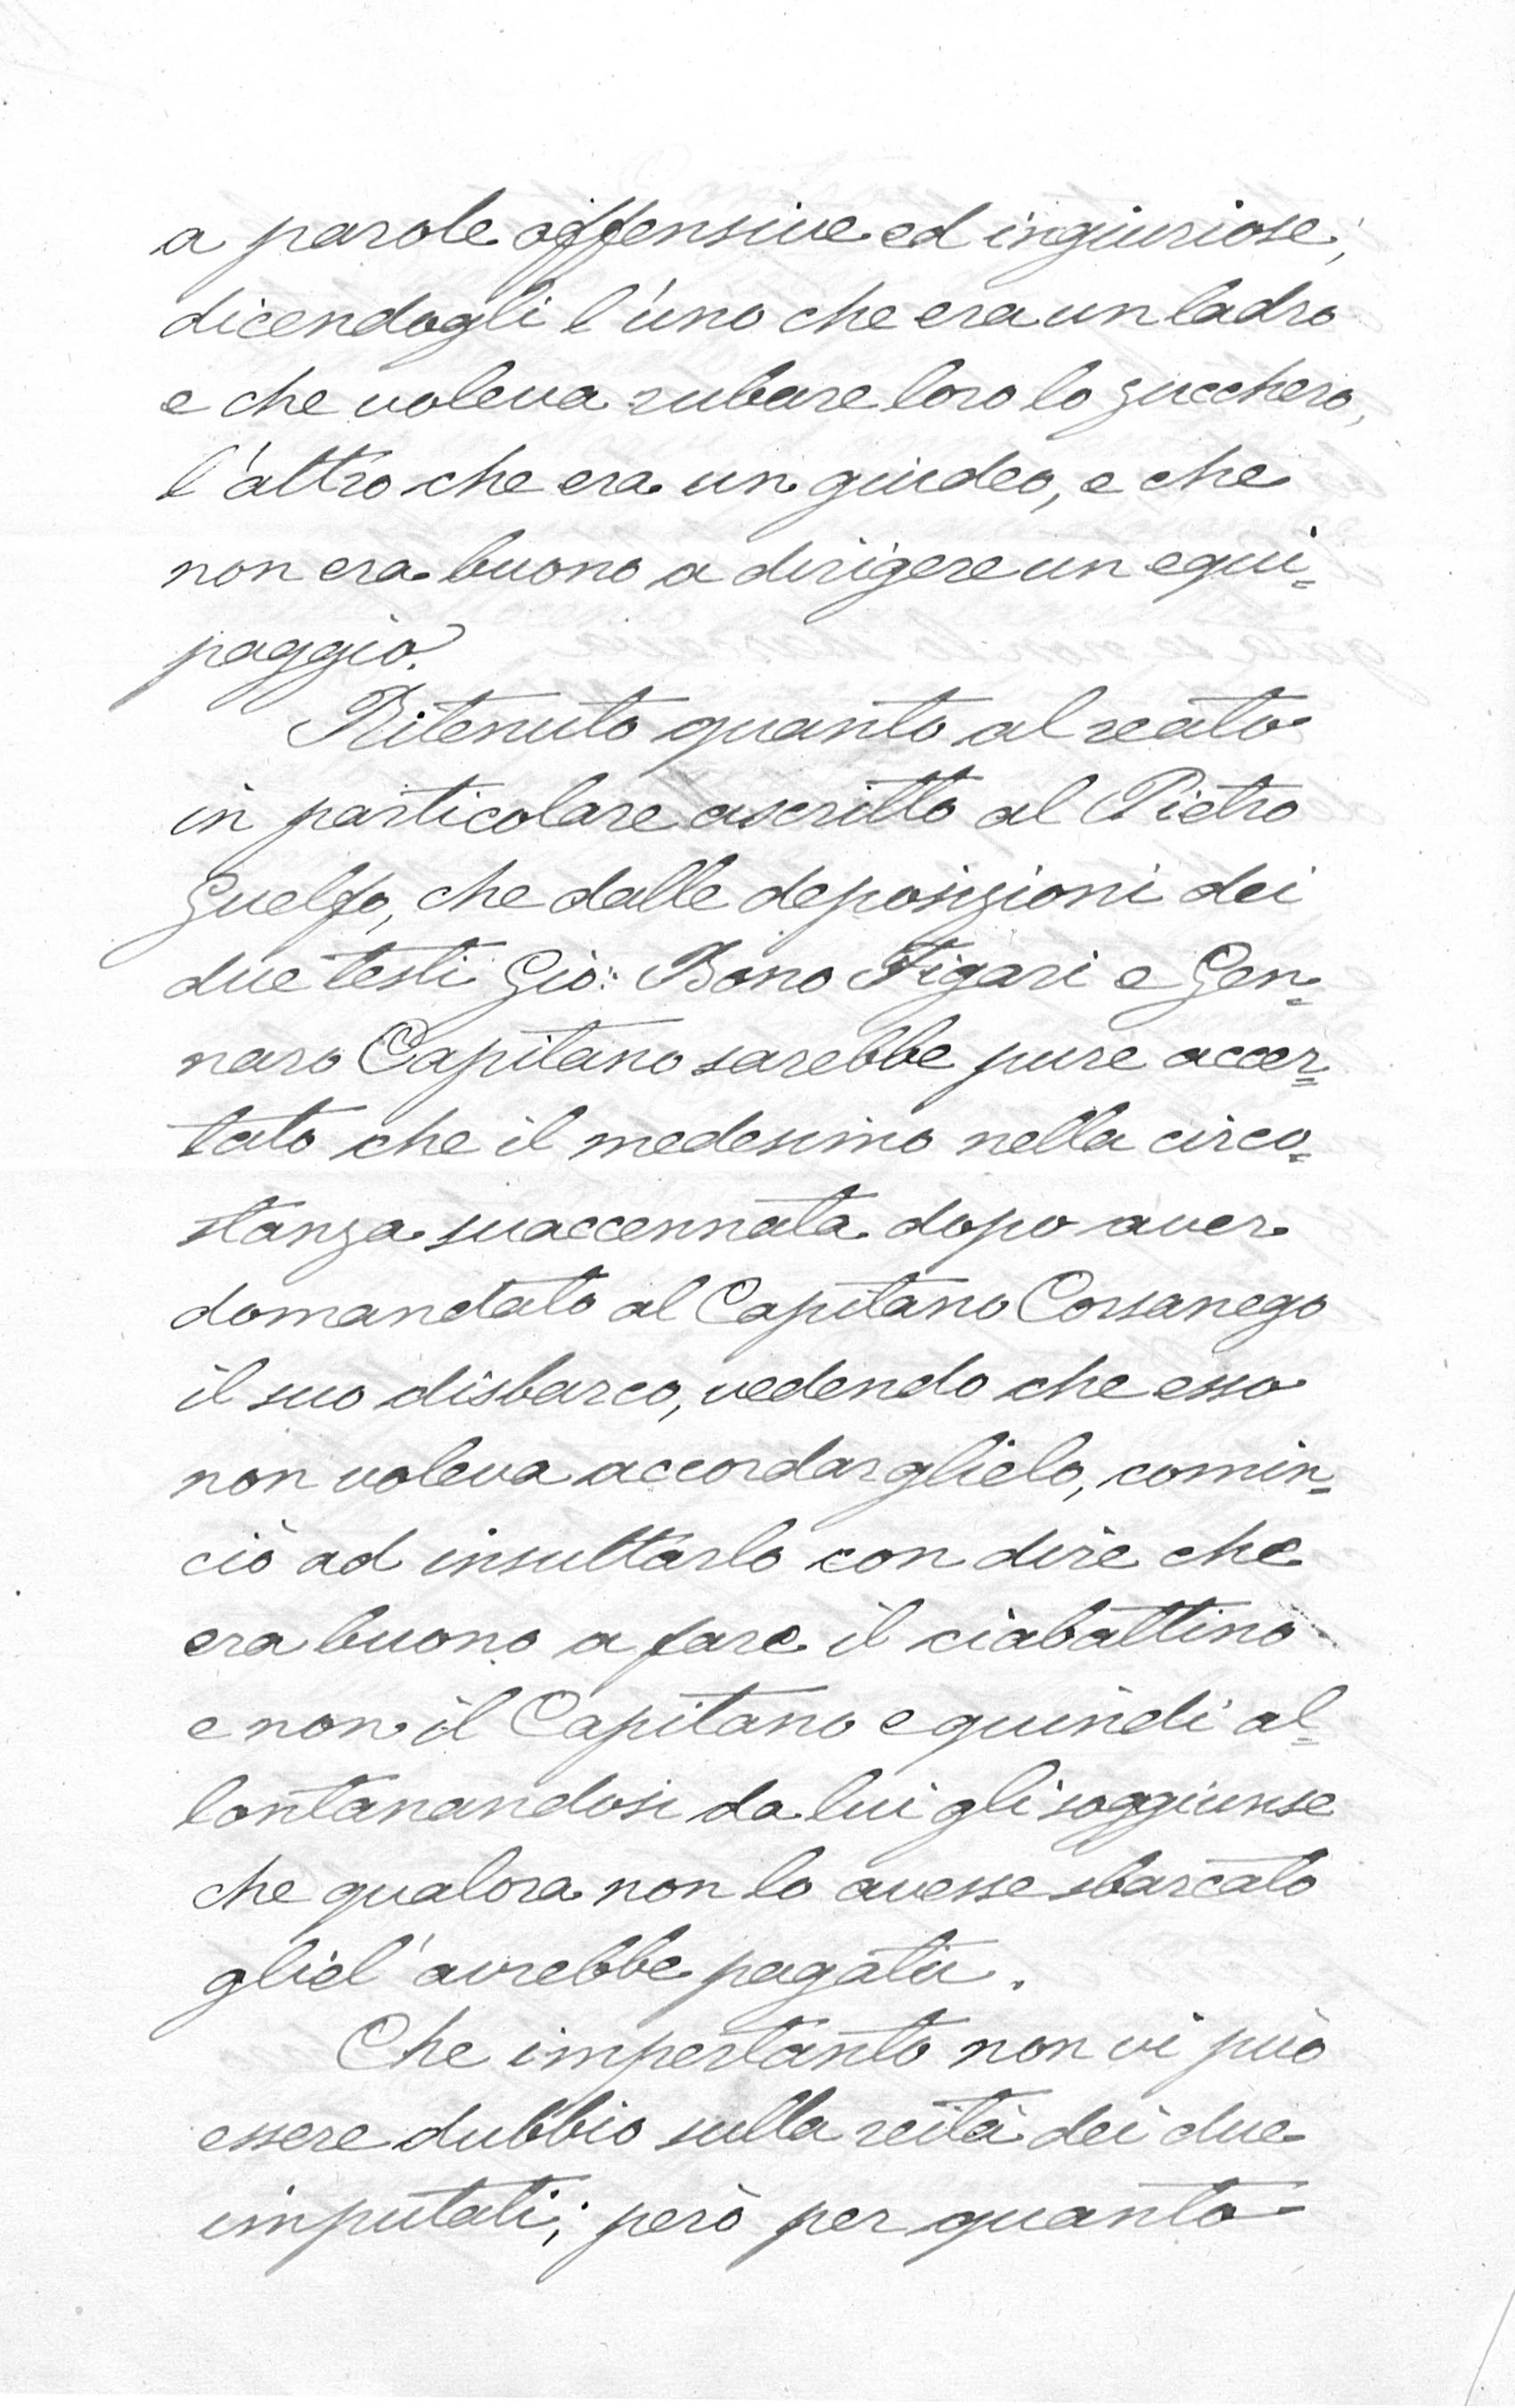 a parole offensive ed ingiuriose,
dicendogli l'uno che era un ladro
e che voleva rubare loro lo zucchero,
l'altro che era un giudeo, e che
non era buono a dirigere un equi=
paggio.
Ritenuto quanto al reato
in particolare ascritto al Pietro
Guelfo, che dalle deposizioni dei
due testi Gio: Bono Figari e Gen=
naro Capitano sarebbe pure accer=
tato che il medesimo nella circo=
stanza suaccennata dopo aver
domandato al Capitano Corsanego
il suo disbarco, vedendo che esso
non voleva accordarglielo, comin=
ciò ad insultarlo con dire che
era buono a fare il ciabattino
e non il Capitano e quindi al=
lontanandosi da lui gli soggiunse
che qualora non lo avesse sbarcato
gliel'avrebbe pagata.
Che impertanto non vi può
essere dubbio sulla reità dei due
imputati; però per quanto